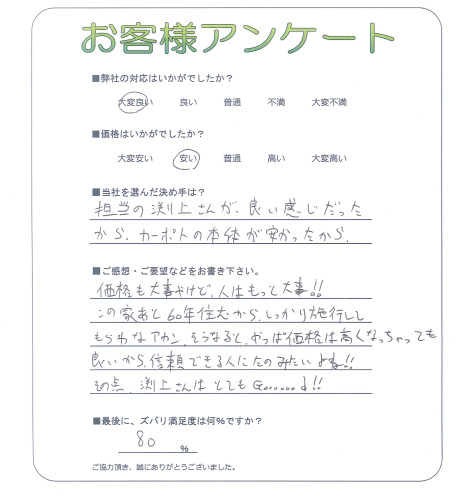 お客様アンケート
■弊社の対応はいかがでしたか？
大変良い 良い 普通 不満 大変不満
■価格はいかがでしたか？
大変安い 安い 普通 高い 大変高い
■当社を選んだ決め手は？
担当の渕上さんが、良い感じだった
から、カーポートの本体が安かったから、
■ご感想・ご要望などをお書き下さい。
価格も大事やけど、人はもっと大事!!
この家あと60年住むから、しっかり施行して
もらわなアカン、そうなると、やっぱ価格は高くなっちゃっても
良いから、信頼できる人にたのみたいよね!!
その点、渕上さんは とても G……d!!
■最後に、ズバリ満足度は何%ですか？
80 %
ご協力頂き、誠にありがとうございました。